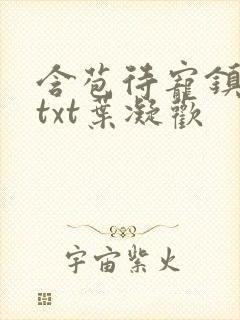 含苞待寵鎮
txt葉凝歡
宇宙紫火